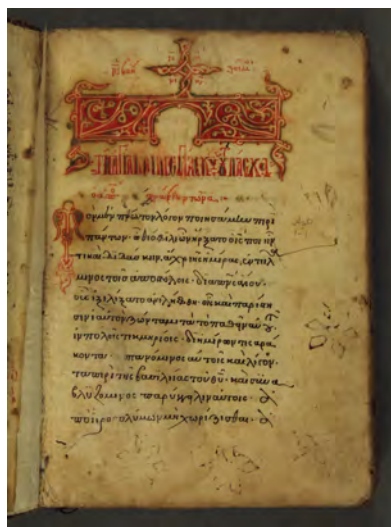 Τὸν μὲν πρῶτον λόγον ἐποιησάμην περὶ
πάντων ὦ θεόφιλε ὧν ἤρξατο ὁ ις ποιεῖν
τε καὶ διδάσκειν ἄχρι ἧς ἡμέρας ἐντειλά
μενος τοῖς ἀποστόλοις· διὰ πνς ἁγίου·
οὓς ἐξελέξατο ἀνελήφθη· οἷς καὶ παρέστη
σεν ἑαυτὸν ζῶντα μετὰ τὸ παθεῖν αὐτ
ἐν πολλοῖς τεκμηρίοις· δι ἡμερῶν τεσσαρά
κοντα· ὀπτανόμενος αὐτοῖς καὶ λέγων
τὰ περὶ τῆς βασιλείας τοῦ θυ· καὶ συνα
λιζόμενος παρήγγειλεν αὐτοῖς· ἀ
πὸ ἱεροσολύμων μὴ χωρίζεσθαι·